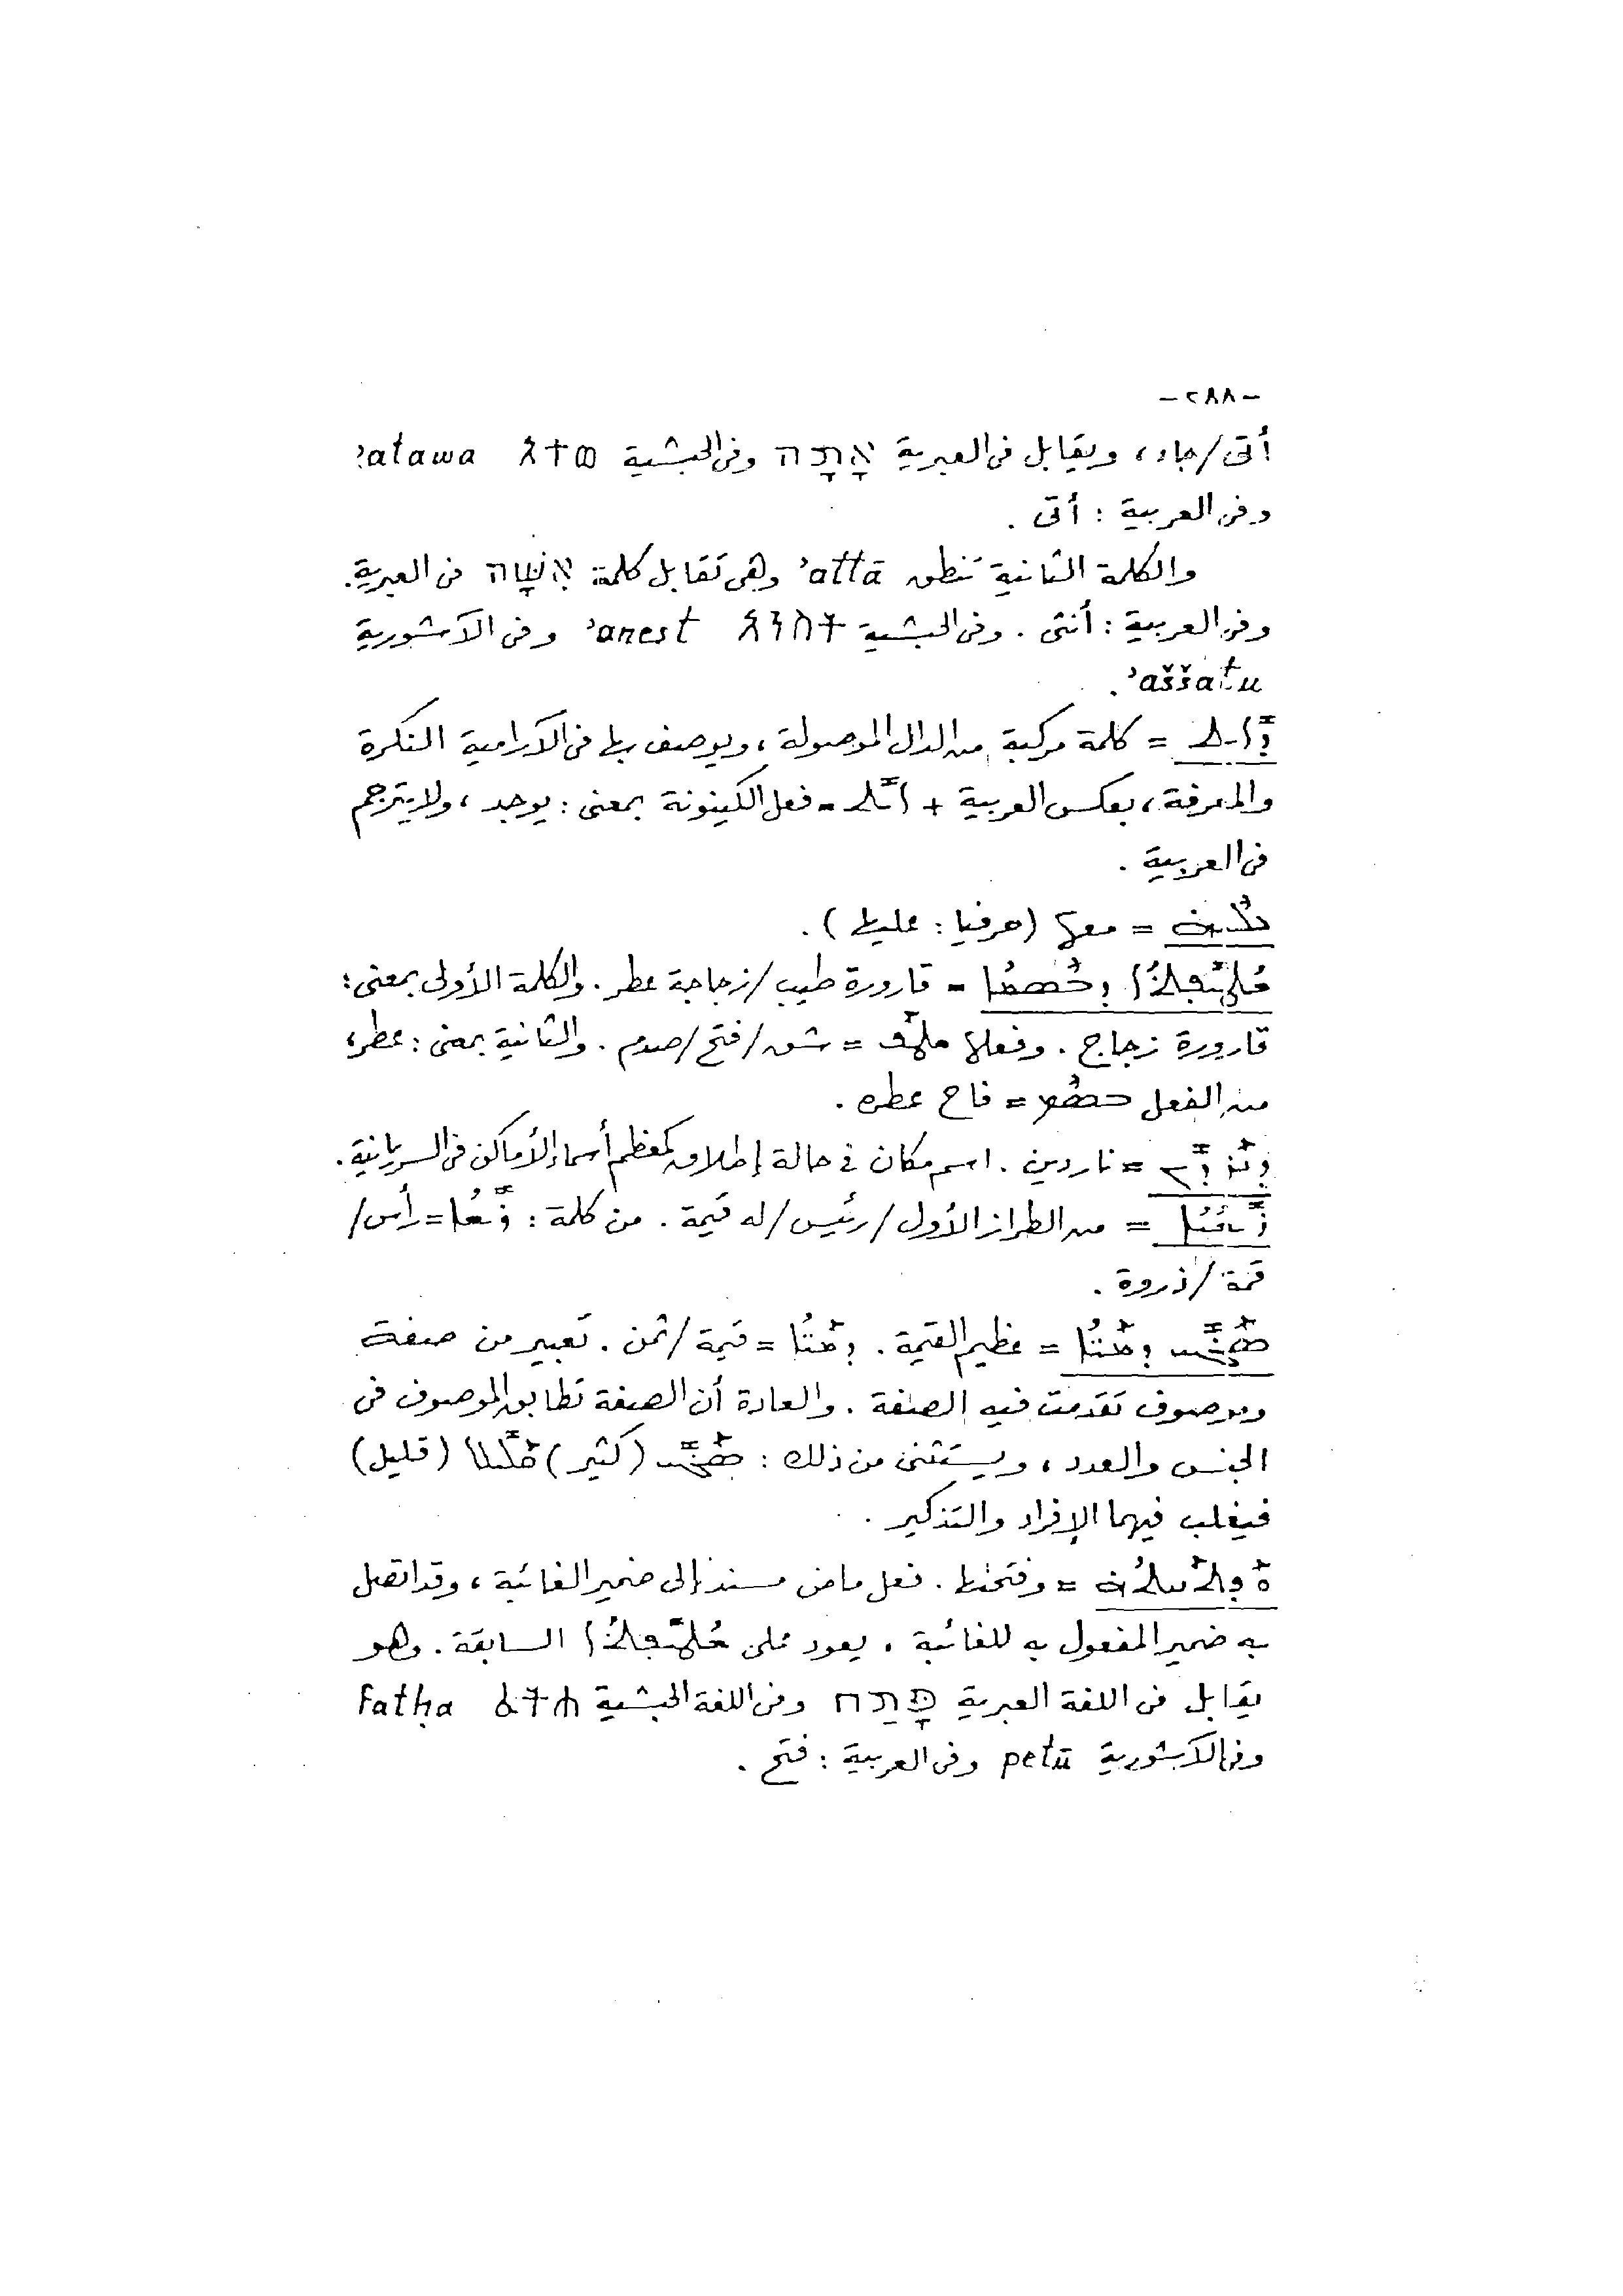 -٢٨٨-
أتى/جاء، ويقابل فى العبرية אָתָה وفى الحبشية አተወ ʾatawa
وفى العربية : أتى .
والكلمة الثانية تنطق ʾattā وهى تقابل كلمة אִשָּׁה فى العبرية.
وفى العربية : أنثى . وفى الحبشية አንስት ʾanest وفى الآشورية
ʾaššatu .
ܕܐܝܬ = كلمة مركبة من الدال الموصولة ، ويوصف بها فى الآرامية النكرة
والمعرفة ، بعكس العربية + ܐܝܬ = فعل الكينونة بمعنى : يوجد ، ولا يترجم
فى العربية .
ܥܠܝܗ̇ = معها (حرفيا : عليها) .
ܫܛܝܦܬܐ ܕܒܣܡܐ = قارورة طيب/زجاجة عطر . والكلمة الأولى بمعنى :
قارورة زجاج . وفعلها = شق/فتح/صدم . والثانية بمعنى : عطر،
من الفعل ܒܣܡ = فاح عطره .
ܢܪܕܝܢ = ناردين . اسم مكان فى حالة إطلاق كمعظم أسماء الأماكن فى السريانية .
ܪܝܫܝܐ = من الطراز الأول/رئيس/له قيمة . من كلمة : ܪܝܫܐ = رأس/
قمة/ذروة .
ܣܓܝ ܕܡܝܐ = عظيم القيمة . ܕܡܝܐ = قيمة/ثمن . تعبير من صفة
وموصوف تقدمت فيه الصفة . والعادة أن الصفة تطابق الموصوف فى
الجنس والعدد ، ويستثنى من ذلك : ܣܓܝ (كثير) ܩܠܝܠ (قليل)
فيغلب فيهما الإفراد والتذكير .
ܘܦܬܚܬܗ̇ = وفتحتها . فعل ماض مسند إلى ضمير الغائبة ، وقد اتصل
به ضمير المفعول به للغائبة ، يعود على ܫܛܝܦܬܐ السابقة . وهو
يقابل فى اللغة العبرية פָּתַח وفى اللغة الحبشية ፈትሐ Fatḥa
وفى الآشورية petū وفى العربية : فتح .